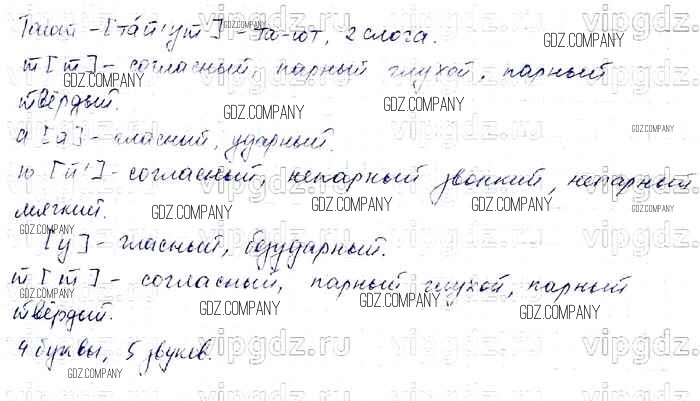 Тают - [тáй'ут] - та-ют, 2 слога.
т [т] - согласный, парный глухой, парный
твёрдый.
а [а] - гласный, ударный.
ю [й'] - согласный, непарный звонкий, непарный
мягкий.
[у] - гласный, безударный.
т [т] - согласный, парный глухой, парный
твёрдый.
4 буквы, 5 звуков.